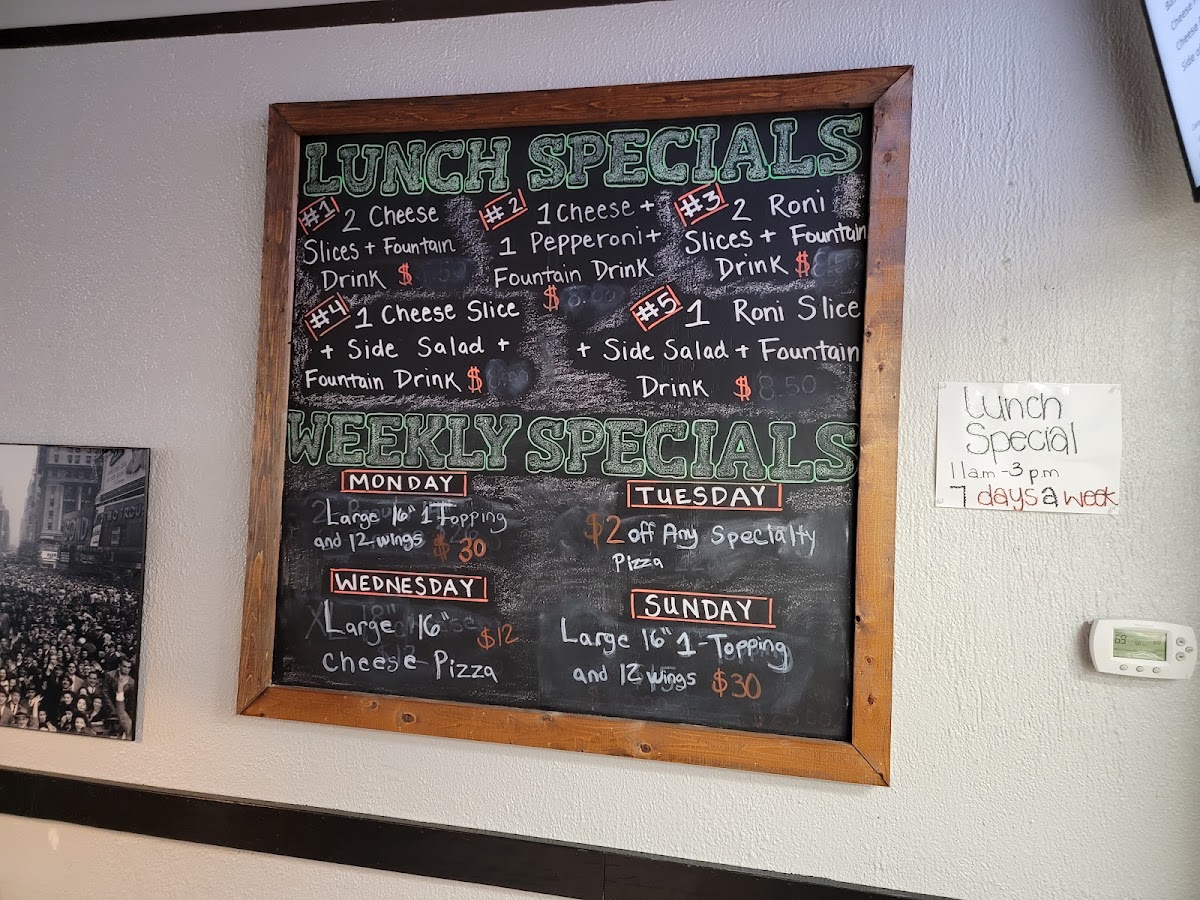 LUNCH SPECIALS
#1 2 Cheese
Slices + Fountain
Drink $
#2 1 Cheese +
1 Pepperoni +
Fountain Drink
$8.00
#3 2 Roni
Slices + Fountain
Drink $8.50
#4 1 Cheese Slice
+ Side Salad +
Fountain Drink $
#5 1 Roni Slice
+ Side Salad + Fountain
Drink $8.50
WEEKLY SPECIALS
MONDAY
Large 16" 1 Topping
and 12 wings $30
TUESDAY
$2 off Any Specialty
Pizza
WEDNESDAY
Large 16" $12
Cheese Pizza
SUNDAY
Large 16" 1-Topping
and 12 wings $30
Lunch
Special
11am-3p.m
7 days a week
69
Cheese
Cheese
Side